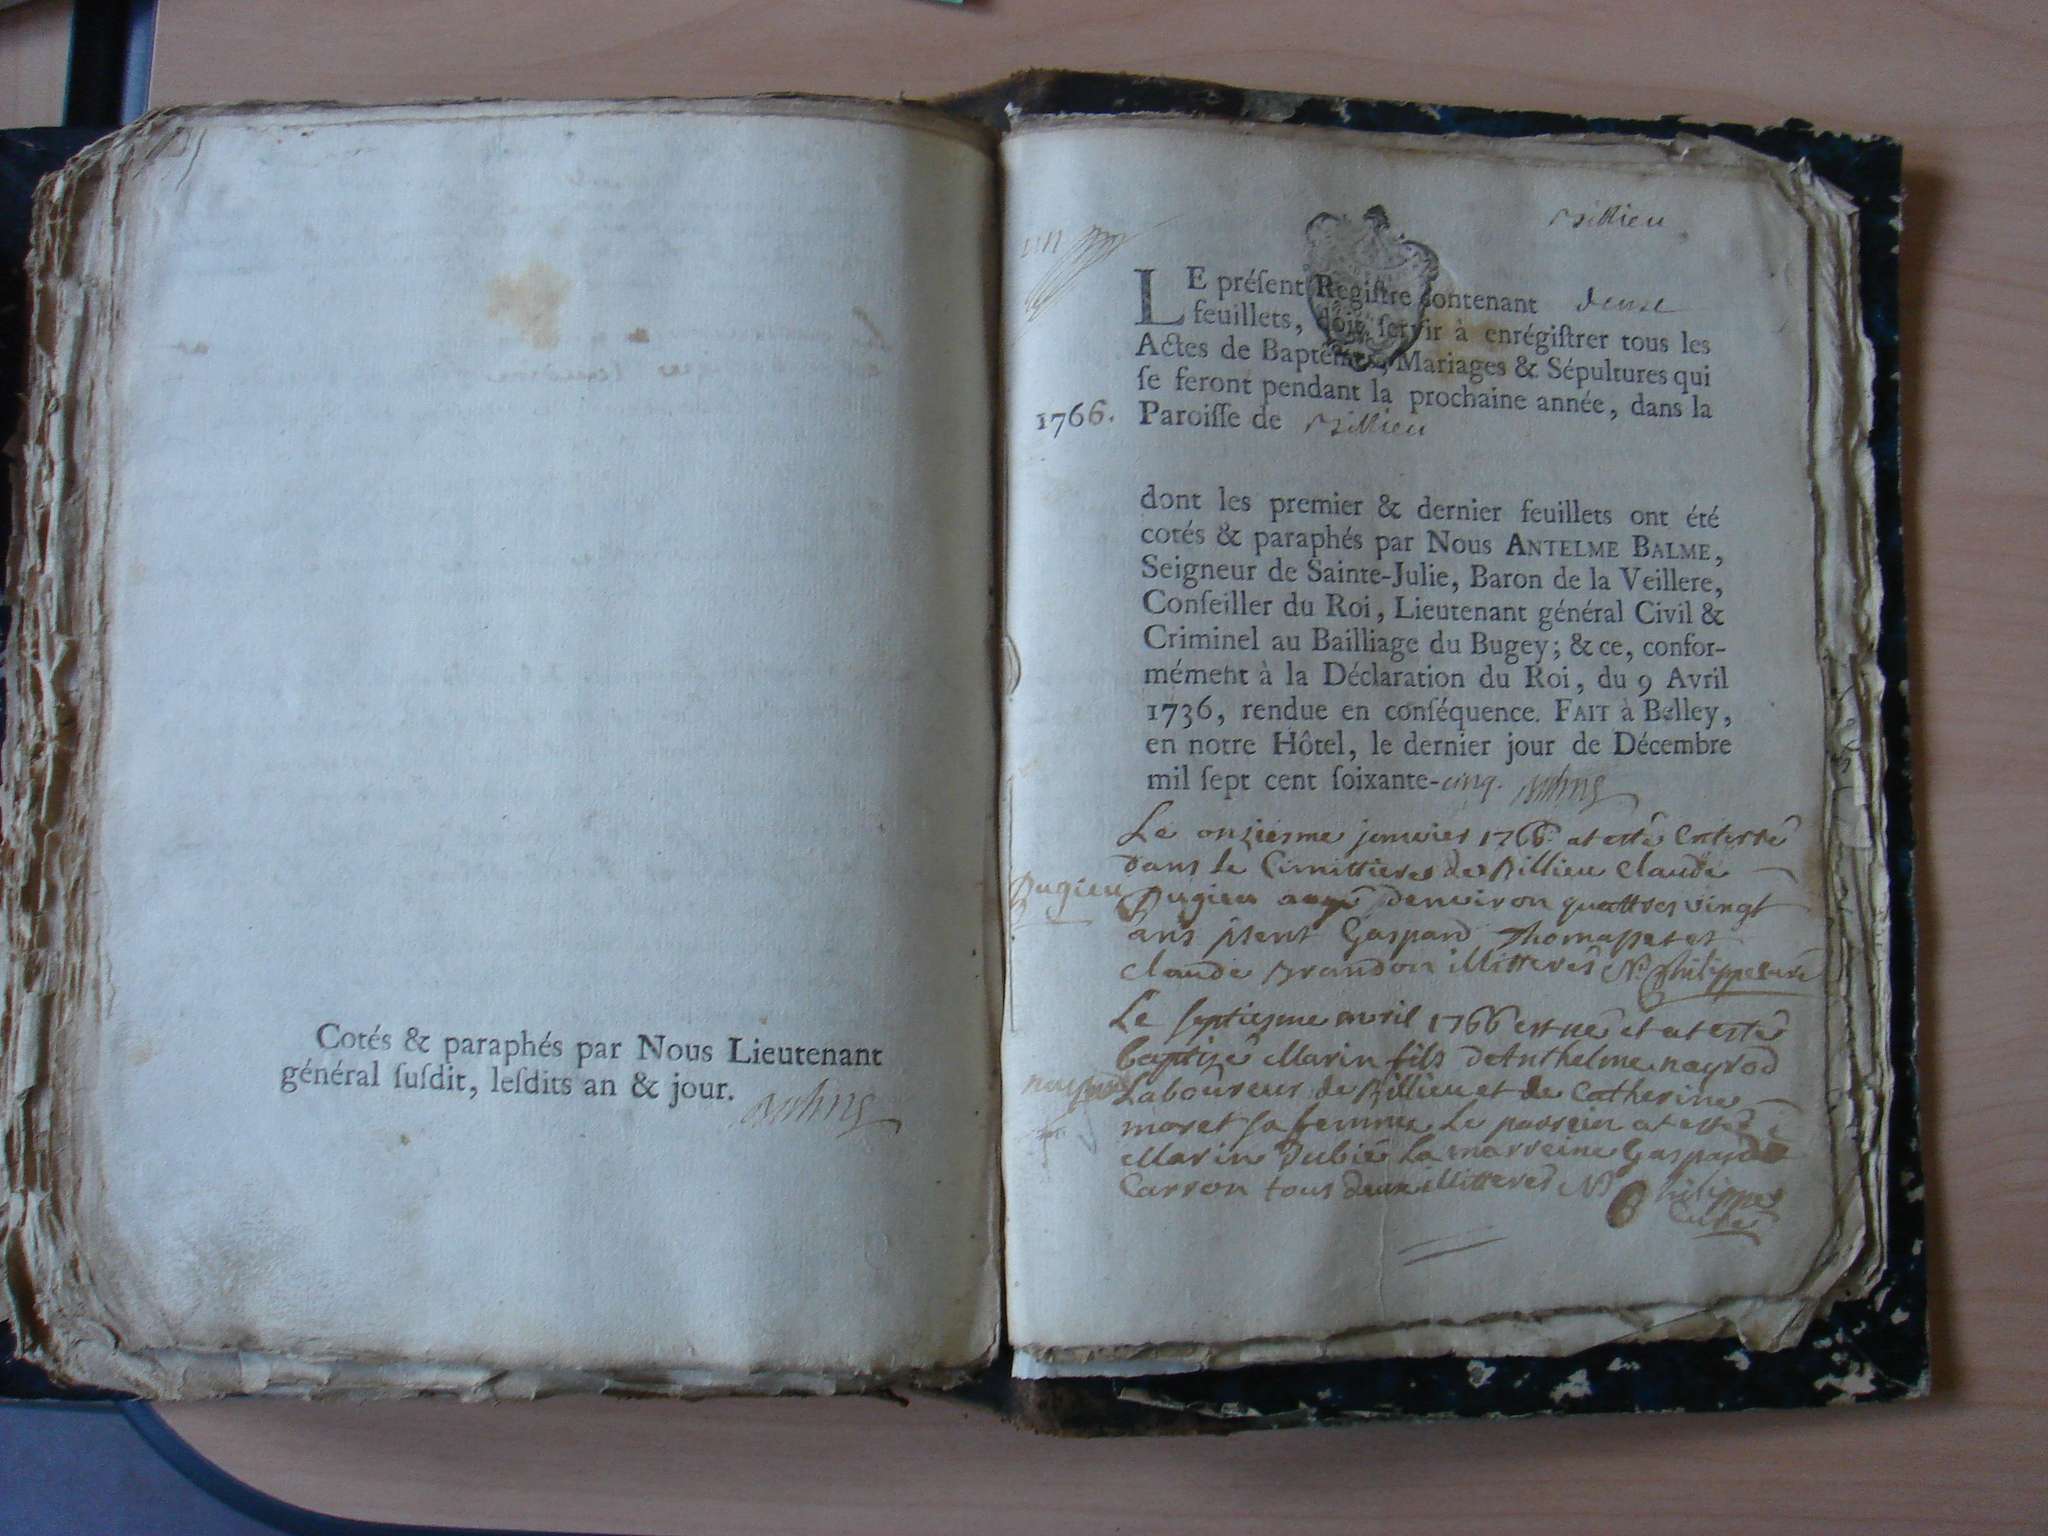 Cotés & paraphés par Nous Lieutenant
général ſuſdit, leſdits an & jour.
Billieu
LE préſent Regiſtre contenant deux
feuillets, doit ſervir à enrégiſtrer tous les
Actes de Baptêmes, Mariages & Sépultures qui
ſe feront pendant la prochaine année, dans la
1766. Paroiſſe de Billieu
dont les premier & dernier feuillets ont été
cotés & paraphés par Nous ANTELME BALME,
Seigneur de Sainte-Julie, Baron de la Veillere,
Conſeiller du Roi, Lieutenant général Civil &
Criminel au Bailliage du Bugey; & ce, confor-
mément à la Déclaration du Roi, du 9 Avril
1736, rendue en conſéquence. FAIT à Belley,
en notre Hôtel, le dernier jour de Décembre
mil ſept cent ſoixante-cinq.
Le onziesme janvier 1766 at esté enterré
dans le Cimittiere de Billieu Claude
Pugieu
Pugieu aagé denviron quattres vingt
ans psent Gaspard Thomasset et
Claude Brandon illitterés N. Philippe curé
Le septiesme avril 1766 est né et at esté
baptizé Marin fils deAnthelme nayrod
Laboureur de Billieu et de Catherine
moret sa femme Le parrein at esté
Marin Dubié La marreine Gasparde
Carron tous deux illitterés N Philippe
Curé